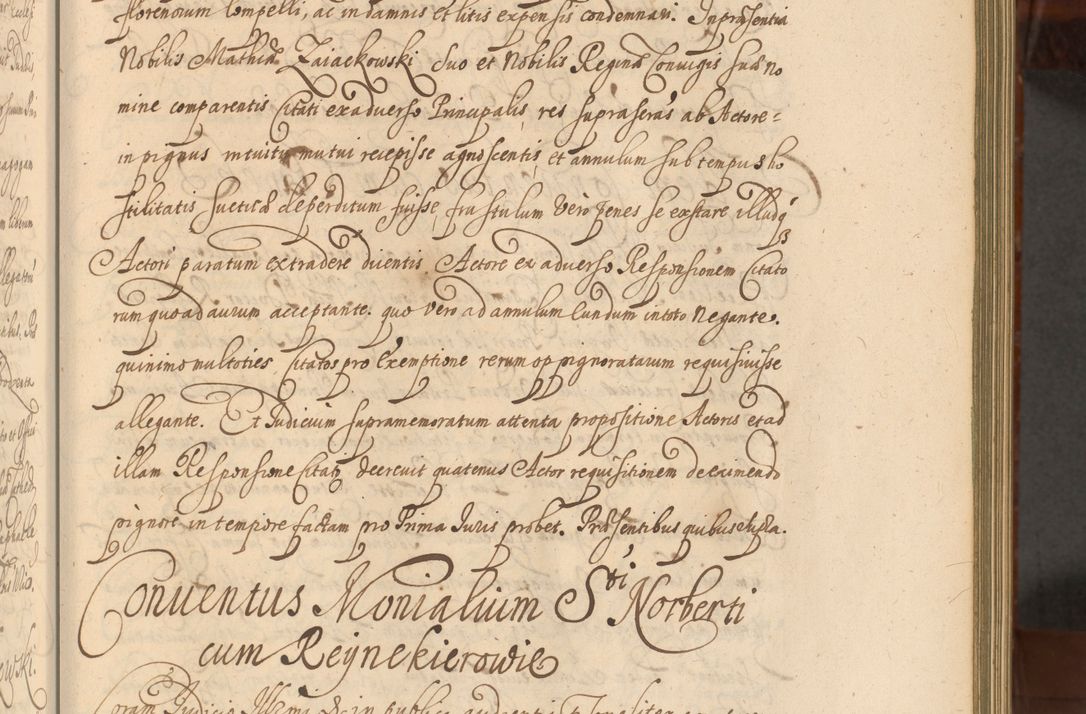 florenorum compelli, ac in damnis et litis expensis condemnari. In præsentia
Nobilis Mathiæ Zaiackowski suo et Nobilis Reginæ Conuigis suæ No
mine comparentis Citati ex aduerso Principalis, res suprascras ab Actore =
in pignus intuitu mutui recepisse agnoscentis, et annulum sub tempus ho
stilitatis Sueticæ deperditum fuisse, frustulum vero penes se exstare illudq3
Actori paratum extradere dicentis Actore ex aduerso Responsionem Citato
rum quo ad aurum acceptante. quo vero ad annulum Eundum in toto Negante.
quinimo multoties Citatos pro Exemptione rerum oppignoratarum requisiuisse
allegante. Et Iudicium supramemoratum attenta propositione Actoris et ad
illam Responsione Citati decreuit quatenus Actor requisitionem de eximendo
pignore in tempore factam pro Prima Iuris probet. Præsentibus quibus supra.
Conuentus Monialium S ti Norberti
cum Reynekierowie
Coram Iudicio in publica